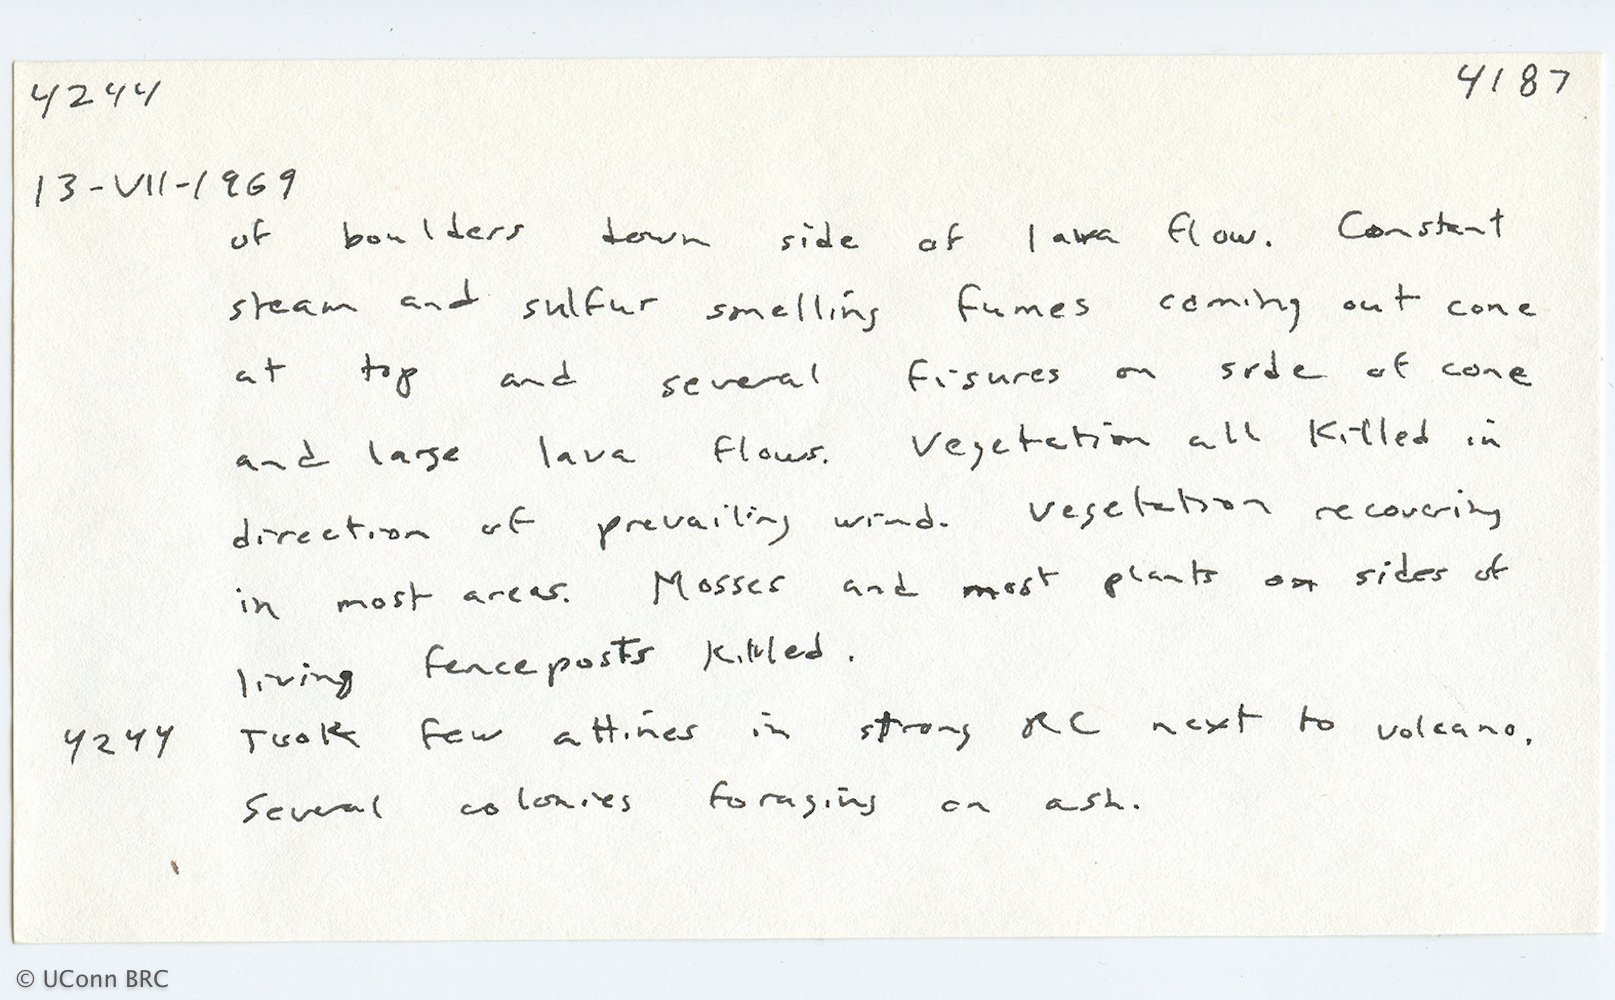 4244 4187
13-VII-1969
of boulders down side of lava flow. Constant
steam and sulfur smelling fumes coming out cone
at top and several fisures on side of cone
and large lava flows. Vegetation all killed in
direction of prevailing wind. Vegetation recovering
in most areas. Mosses and most plants on sides of
living fenceposts killed.
4244 Took few attines in strong RC next to volcano.
Several colonies foraging on ash.
© UConn BRC